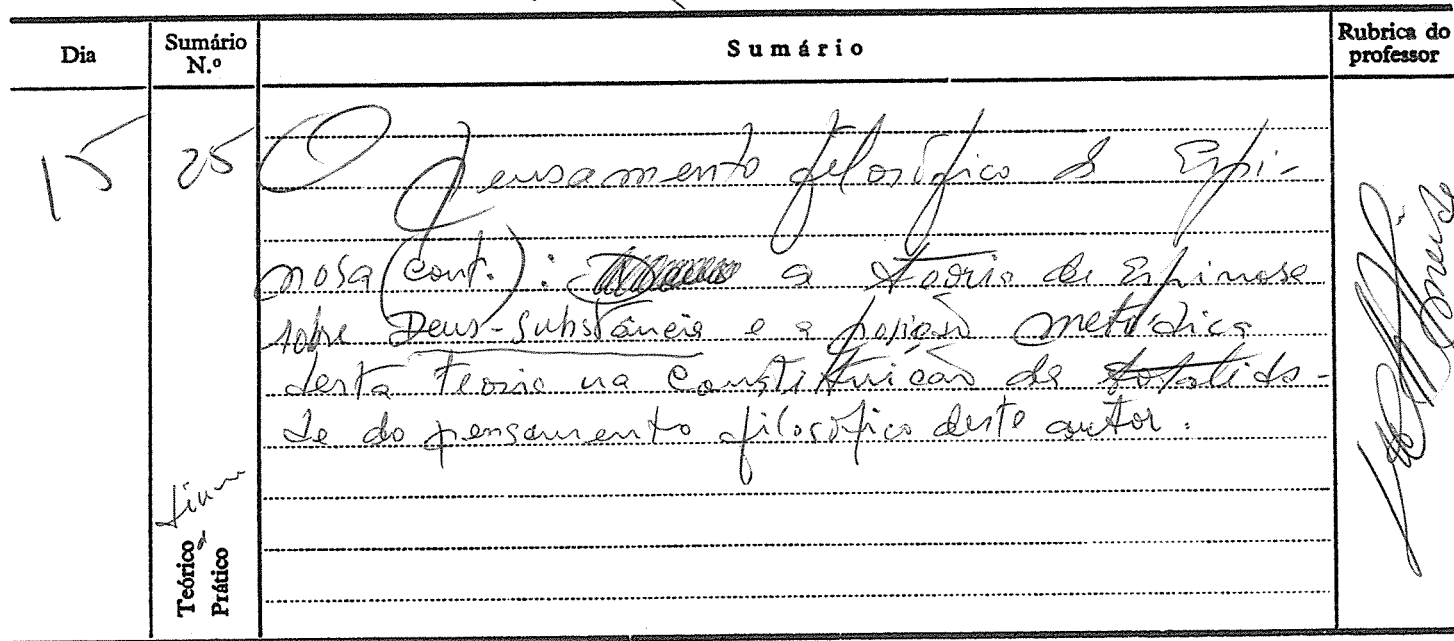 Dia
Sumário N.º
Sumário
Rubrica do professor
15
25
O pensamento filosófico de Espi-
nosa (cont.): a teoria de Espinosa
sobre Deus-Substância e a posição metódica
desta teoria na constituição da totalida-
de do pensamento filosófico deste autor.
Teórico
Prático